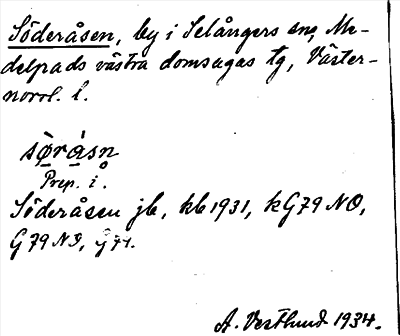 Söderåsen, by i Selångers sn, Me-
delpads västra domsagas tg, Väster-
norrl. l.
sø̀rásn
Prep. i.
Söderåsen jb, kb 1931, kG79 NO,
G79 NO, G71.
A. Vestlund 1934.